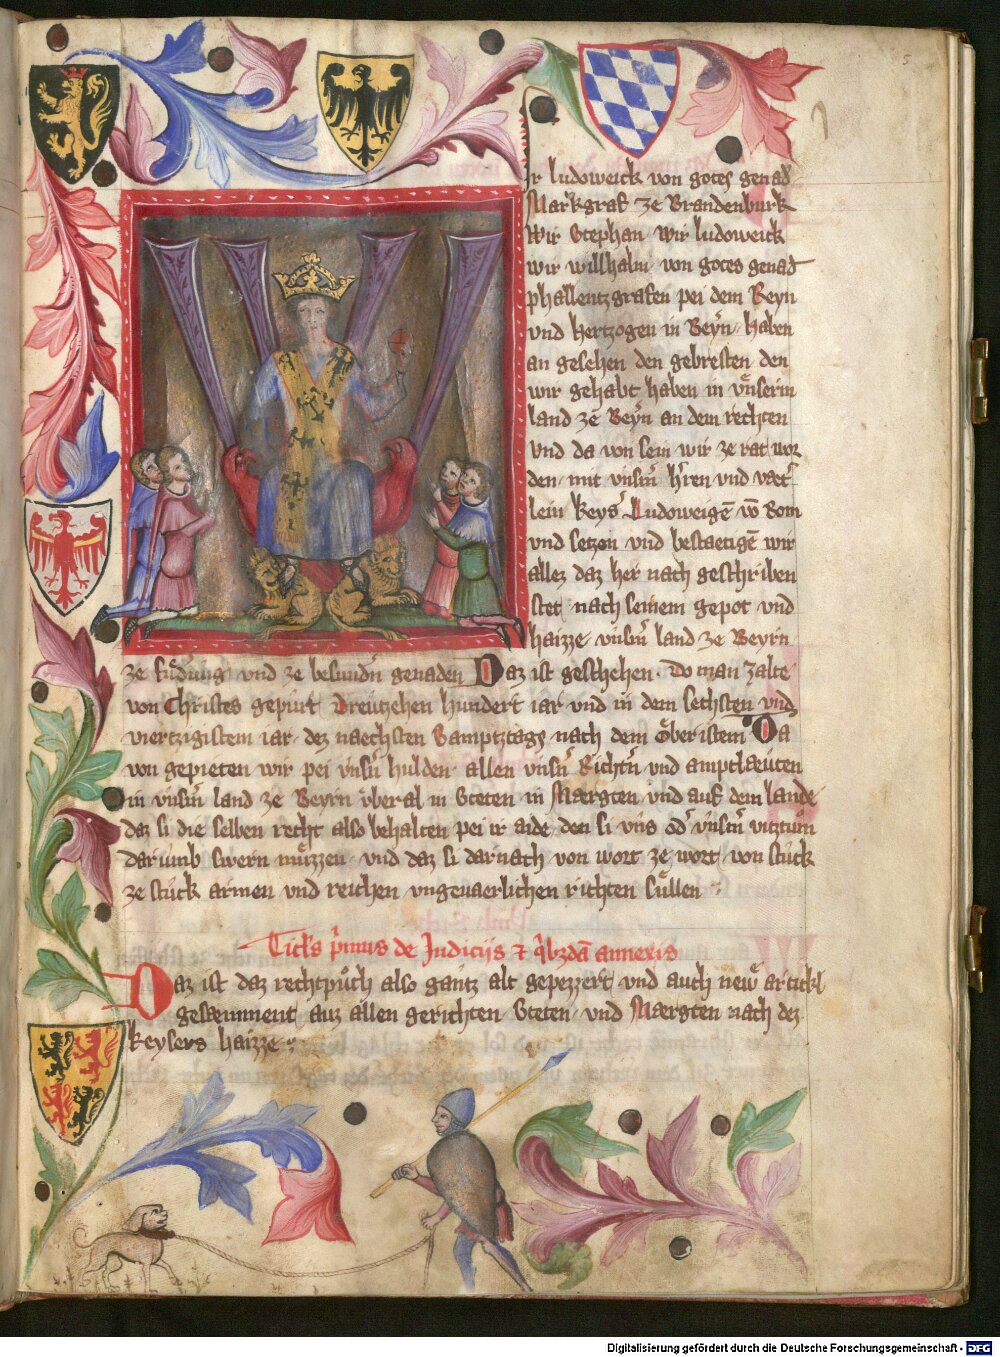 Ir ludoweick von gotes genad
Markgraf ze Brandenburk
Wir Stephan Wir ludoweick
wir willhalm von gotes genad
phallentzgrafen pei dem Reyn
vnd hertzogen in Beyrn haben
an gesehen den gebresten den
wir gehabt haben in vnserm
land ze Beyrn an dem rechten
vnd da von sein wir ze rat wor
den mit vnsm hren vnd vaet
lein keys Ludoweigē vō Rom
vnd setzen vnd bestaetigē wir
allez daz her nach geschriben
stet nach seinem gepot vnd
haizze vnsm land ze Beyrn
ze fudrung vnd ze besundn genaden Daz ist geschehen Do man zalte
von Christes gepurt Dreutzehen hundert iar vnd in dem sechsten vnd
viertzigistem iar dez naechsten Samptztags nach dem Oberistem Da
von gepieten wir pei vnsn hulden allen vnsn Richtn vnd amptlaeuten
in vnsm land ze Beyrn vberal in Steten in Maergten vnd auf dem lande
daz si die selben recht also behalten pei ir aide den si vns od vnsm vitztum
darumb swern muezzen vnd daz si darnach von wort ze wort von stuck
ze stuck armen vnd reichen vngeuaerlichen richten sullen
Titls pmus de Judicijs et qbzdā annexis
Daz ist daz rechtpuch also gantz alt gepezzert vnd auch new artickl
gesaemment auz allen gerichten Steten vnd Maergten nach dez
keysers haizze
5
Digitalisierung gefördert durch die Deutsche Forschungsgemeinschaft - DFG